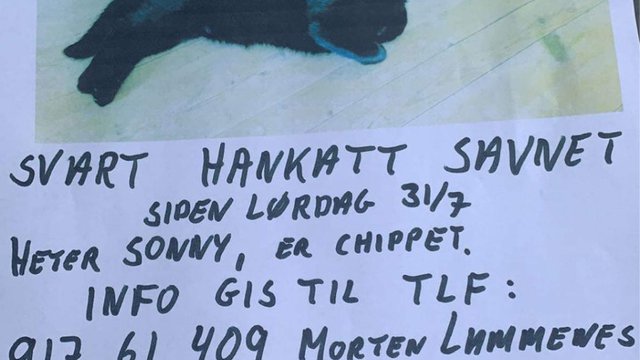 SVART HANKATT SAVNET
SIDEN LØRDAG 31/7
HETER SONNY, ER CHIPPET.
INFO GIS TIL TLF:
917 61 409 MORTEN